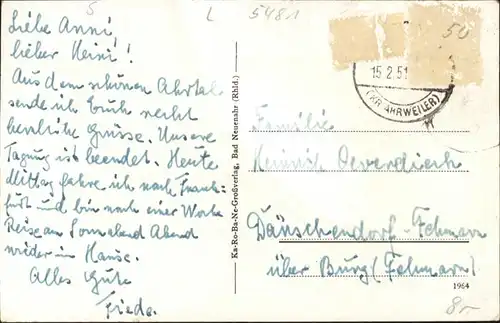 5 L 5481
50
Liebe Anni,
lieber Heini!
Aus dem schönen Ahrtal
sende ich Euch recht
herzliche Grüsse. Unsere
Tagung ist beendet. Heute
Mittag fahre ich nach Frank-
furt und bin nach einer Woche
Reise am Sonnabend Abend
wieder im Hause.
Alles Gute
Friede.
Ka-Ro-Ba-Ne-Großverlag, Bad Neuenahr (Rhld.)
15.2.51
(KR AHRWEILER)
Familie
Heinrich Oeverdieck
Dänschendorf-Fehmarn
über Burg (Fehmarn)
1964
8,-